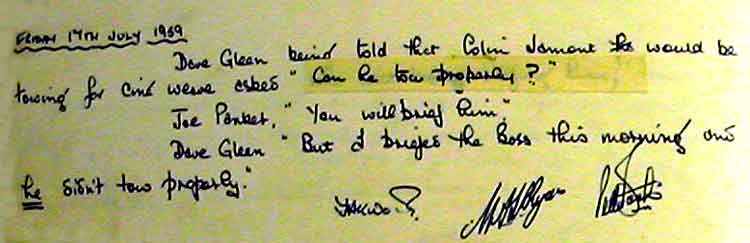 FRIDAY 17TH JULY 1959
Dave Gleen being told that Colin Lamont would be
towing for cine weave asked "Can he tow properly?"
Joe Parker, "You will brief him".
Dave Gleen "But I briefed the boss this morning and
he didn't tow properly."